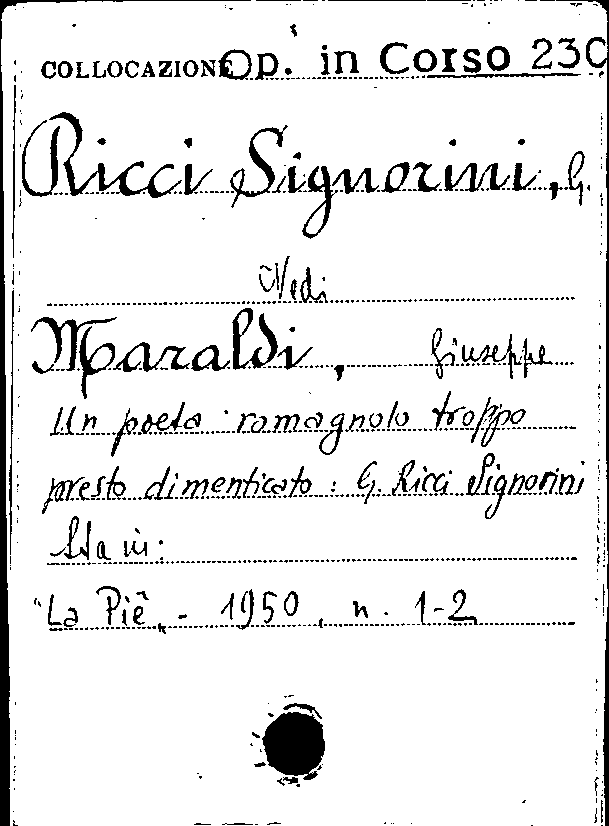 COLLOCAZIONE Op. in Corso 230
Ricci Signorini, G.
Vedi
Maraldi, Giuseppe
Un poeta romagnolo troppo
presto dimenticato: G. Ricci Signorini
Sta in:
"La Piê„ - 1950, n. 1-2